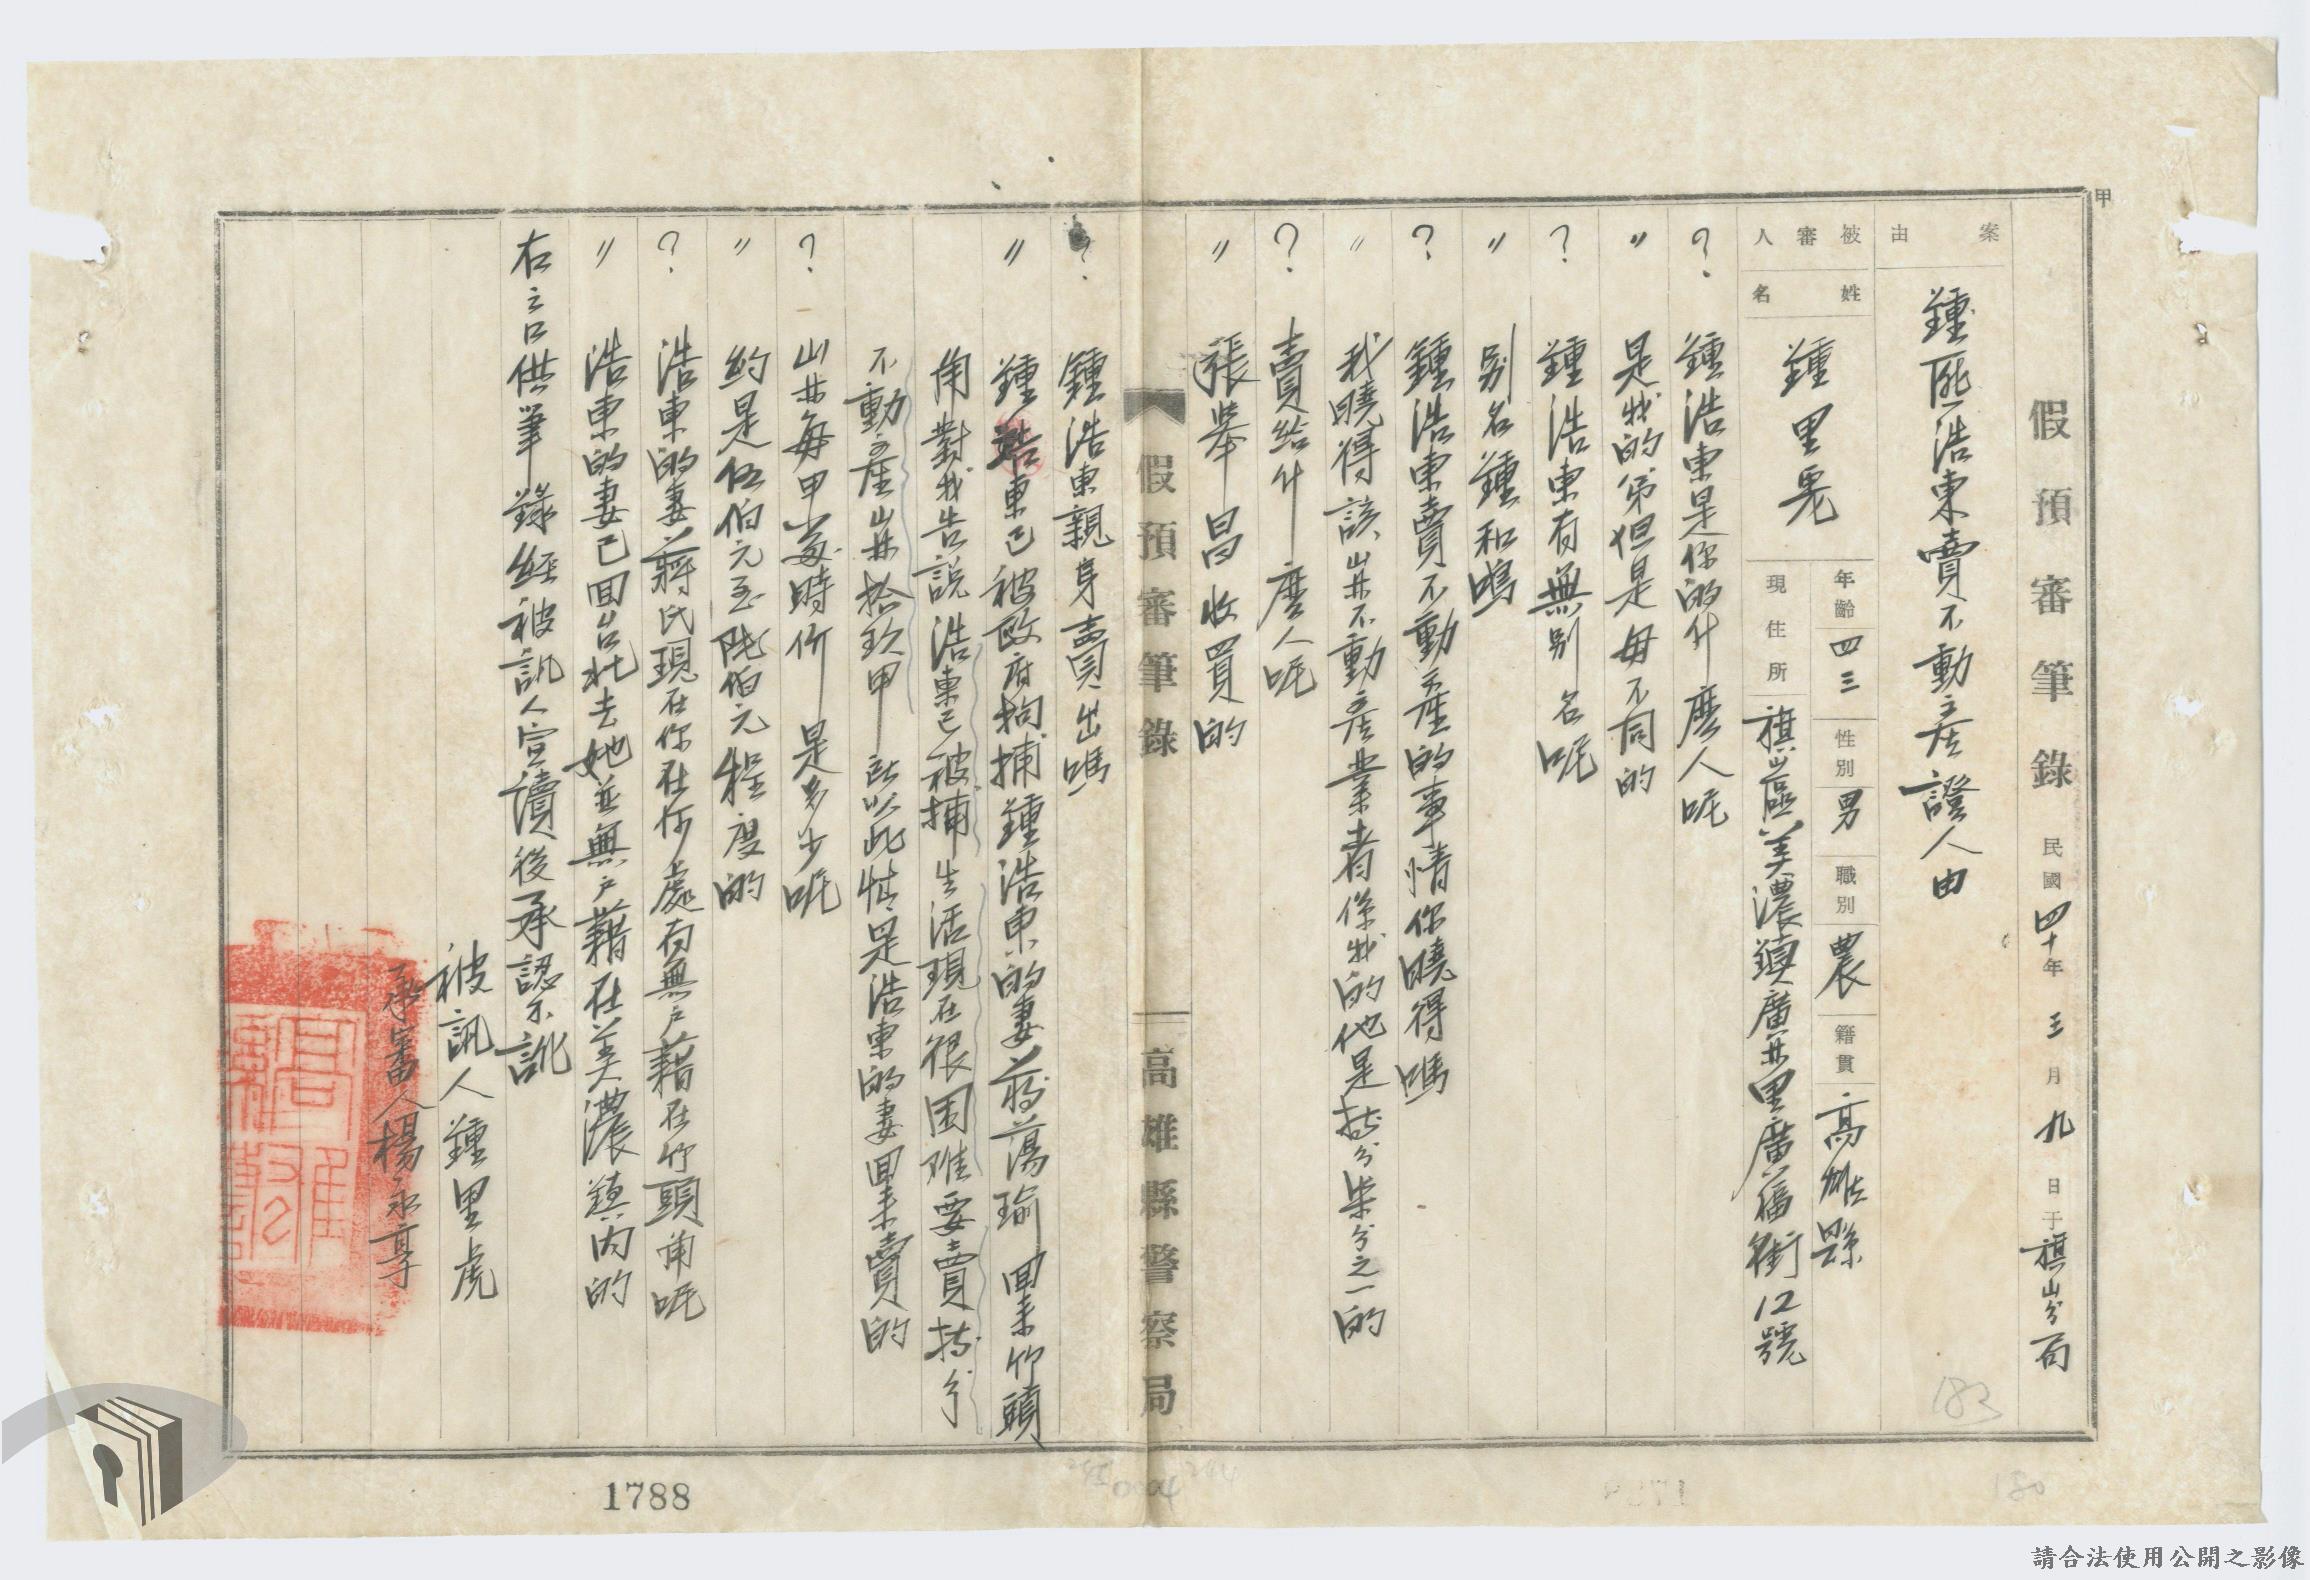 甲
假預審筆錄 民國四十年三月九日于旗山分局
案由 鍾匪浩東賣不動產證人由
被審人
姓名 鍾里
年齡 四三 性別 男 職別 農 籍貫 高雄縣
現住所 旗山區美濃鎮廣興里廣福街12號
? 鍾浩東是你的什麼人呢
〃 是我的弟但是母不同的
? 鍾浩東有無別名呢
〃 別名鍾和鳴
? 鍾浩東賣不動產的事情你曉得嗎
〃 我曉得該山林不動產業者係我的他是持分柒分之一的
? 賣給什麼人呢
〃 張舉昌收買的
假預審筆錄 高雄縣警察局
? 鍾浩東親身賣出嗎
〃 鍾浩東已被政府拘捕鍾浩東的妻蔣蕩瑜回來竹頭
角對我告說浩東已被捕生活現在很困难要賣持分
不動產山林拾玖甲 所以此情是浩東的妻回來賣的
? 山林每甲當時价是多少呢
〃 約是伍佰元至陸佰元程度的
? 浩東的妻蔣氏現在你在何處有無戶藉在竹頭角呢
〃 浩東的妻已回台北去她並無戶藉在美濃鎮內的
右言口供筆錄經被訊人宣讀後承認不訛
被訊人鍾里虎
承審人楊永享
183
180
1788
請合法使用公開之影像